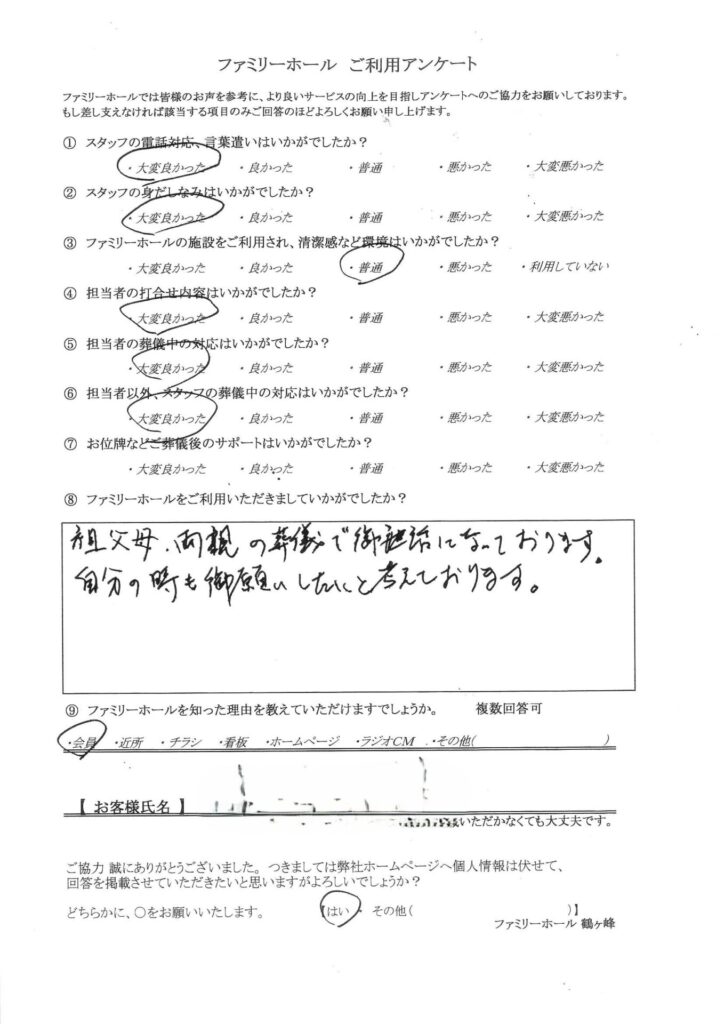 ファミリーホール ご利用アンケート
ファミリーホールでは皆様のお声を参考に、より良いサービスの向上を目指しアンケートへのご協力をお願いしております。
もし差し支えなければ該当する項目のみご回答のほどよろしくお願い申し上げます。
① スタッフの電話対応、言葉遣いはいかがでしたか？
・大変良かった ・良かった ・普通 ・悪かった ・大変悪かった
② スタッフの身だしなみはいかがでしたか？
・大変良かった ・良かった ・普通 ・悪かった ・大変悪かった
③ ファミリーホールの施設をご利用され、清潔感など環境はいかがでしたか？
・大変良かった ・良かった ・普通 ・悪かった ・利用していない
④ 担当者の打合せ内容はいかがでしたか？
・大変良かった ・良かった ・普通 ・悪かった ・大変悪かった
⑤ 担当者の葬儀中の対応はいかがでしたか？
・大変良かった ・良かった ・普通 ・悪かった ・大変悪かった
⑥ 担当者以外、スタッフの葬儀中の対応はいかがでしたか？
・大変良かった ・良かった ・普通 ・悪かった ・大変悪かった
⑦ お位牌などご葬儀後のサポートはいかがでしたか？
・大変良かった ・良かった ・普通 ・悪かった ・大変悪かった
⑧ ファミリーホールをご利用いただきましていかがでしたか？
祖父母、両親の葬儀で御世話になっております。
自分の時も御願いしたいと考えております。
⑨ ファミリーホールを知った理由を教えていただけますでしょうか。 複数回答可
・会員 ・近所 ・チラシ ・看板 ・ホームページ ・ラジオCM ・その他( )
【 お客様氏名 】
いただかなくても大丈夫です。
ご協力 誠にありがとうございました。つきましては弊社ホームページへ個人情報は伏せて、
回答を掲載させていただきたいと思いますがよろしいでしょうか？
どちらかに、○をお願いいたします。 【はい ・ その他( )】
ファミリーホール 鶴ヶ峰